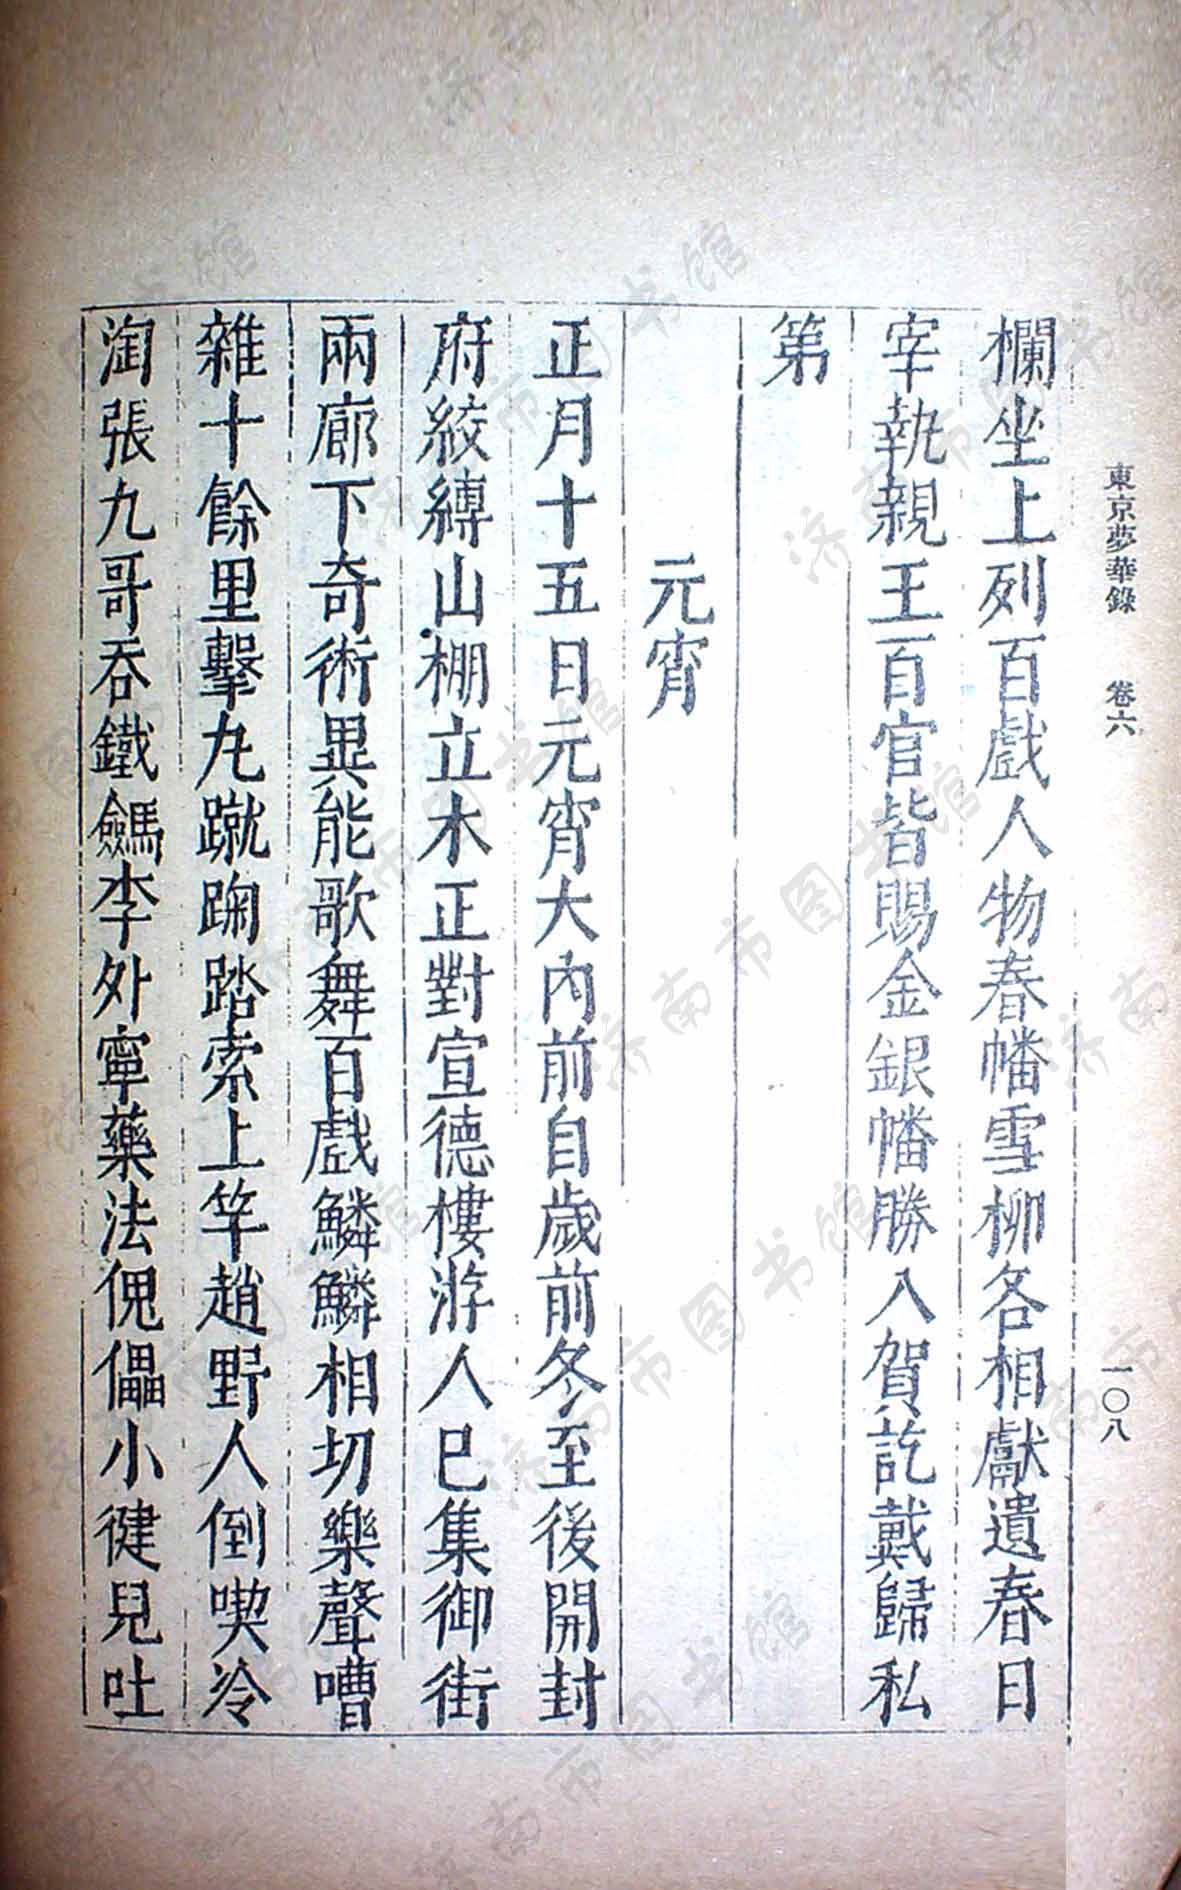 東京夢華錄　卷六　一〇八
欄坐上列百戲人物春幡雪柳各相獻遺春日
宰執親王百官皆賜金銀幡勝入賀訖戴歸私
第
元宵
正月十五日元宵大內前自歲前冬至後開封
府絞縛山棚立木正對宣德樓游人已集御街
兩廊下奇術異能歌舞百戲鱗鱗相切樂聲嘈
雜十餘里擊丸蹴踘踏索上竿趙野人倒喫冷
淘張九哥吞鐵劒李外寧藥法傀儡小健兒吐
济南市图书馆